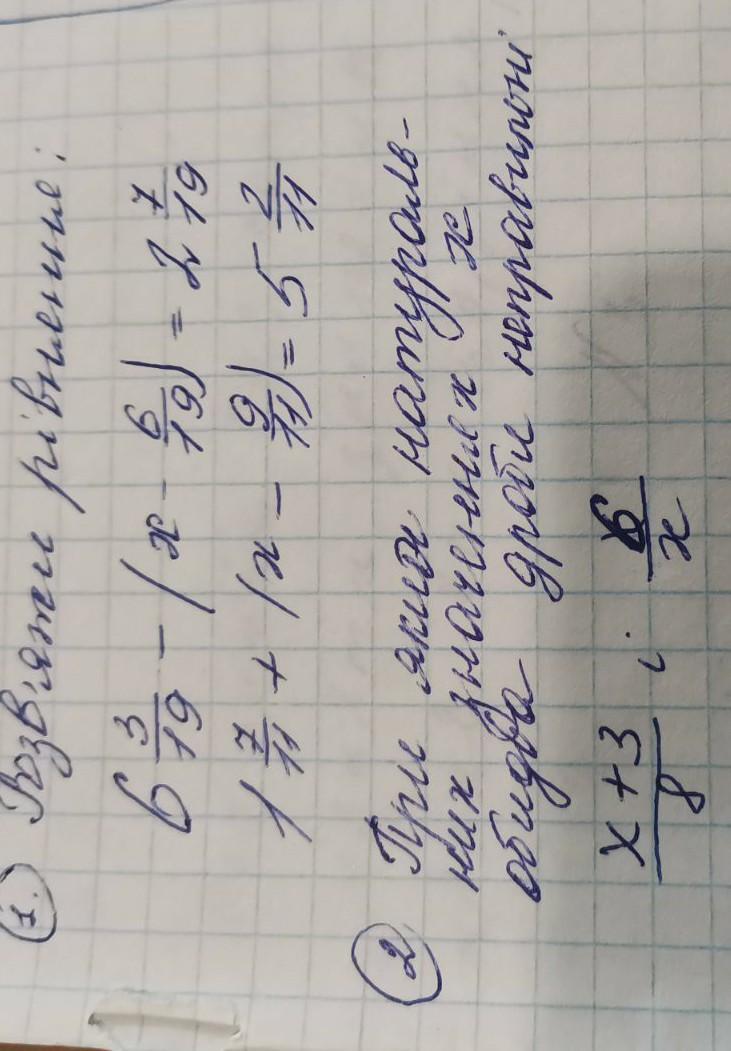 1. Розв'яжи рівняння:
6 3/19 - (x - 6/19) = 2 7/19
1 7/11 + (x - 9/11) = 5 2/11
2 При яких натураль-
них значеннях x
обидва дроби неправильні
x+3/8 і 6/x